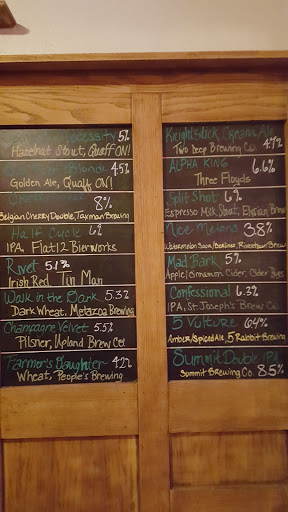 5%
Hazelnut Stout, Quaff ON!
4.5%
Golden Ale, Quaff ON!
8%
Belgian Cherry Double, Taxman Brewing
Half Cycle 6%
IPA, Flat12 Bierworks
Rivet 5.1%
Irish Red, Tin Man
Walk in the Dark 5.3%
Dark Wheat, Metazoa Brewing
Champagne Velvet 5.5%
Pilsner, Upland Brew Co.
Farmer's Daughter 4.2%
Wheat, People's Brewing
Knightstick Cream Ale
Two Deep Brewing Co. 4.7%
ALPHA KING 6.6%
Three Floyds
Split Shot 6%
Espresso Milk Stout, Elysian Brew
Nice Melons 3.8%
Watermelon Sour, Berliner, Rivertown Brew
Mad Bark 5%
Apple/Cinnamon Cider, Cider Boys
Confessional 6.3%
IPA, St. Joseph's Brew Co.
5 Vulture 6.4%
Amber/Spiced Ale, 5 Rabbit Brewing
Summit Double IPA
Summit Brewing Co. 8.5%